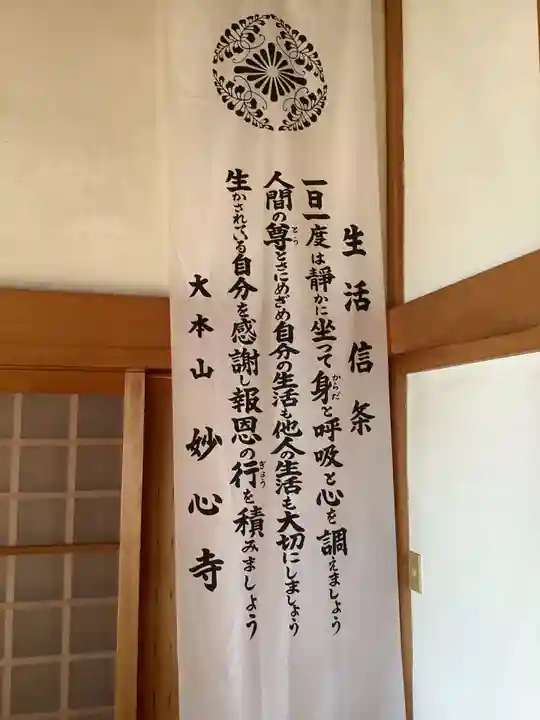 生活信条
一日一度は静かに坐って身と呼吸と心を調えましょう
人間の尊とさにめざめ自分の生活も他人の生活も大切にしましょう
生かされている自分を感謝し報恩の行を積みましょう
大本山 妙心寺